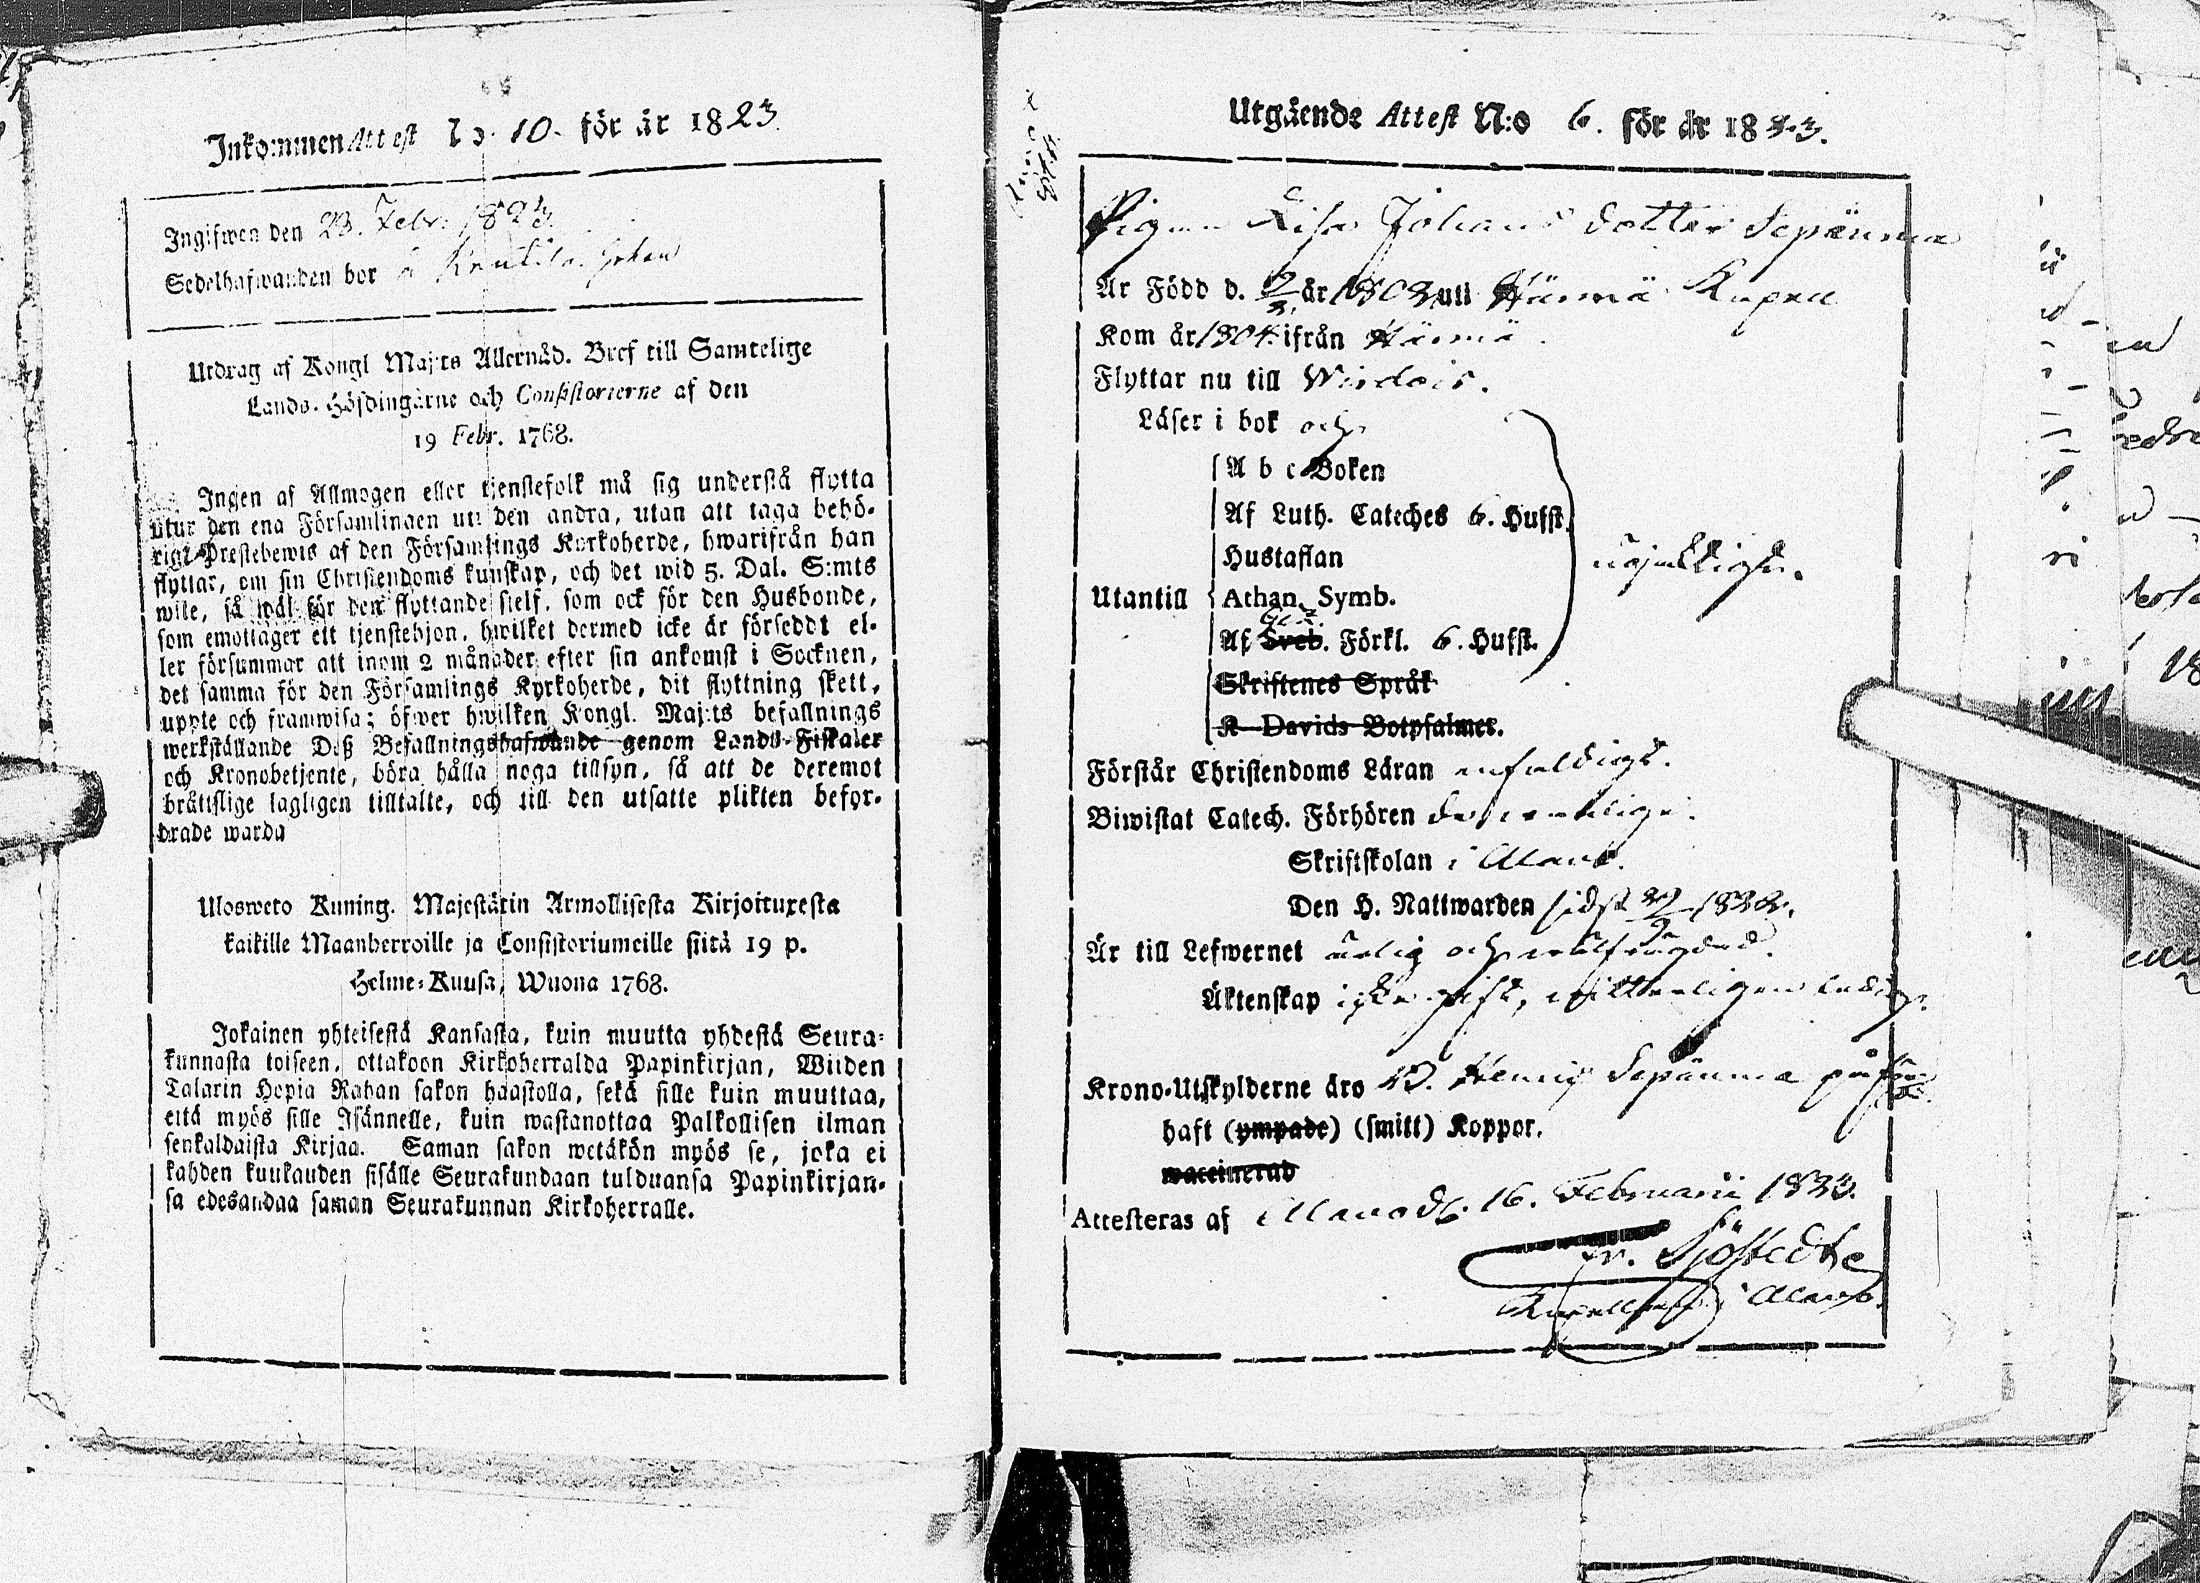 Inkommen Attest No. 10. för år 1823
Ingifwen den 23. Febr. 1823.
Sedelhafwanden bor å
Utdrag af Kongl Maj:ts Allernåd. Bref till Samtelige
Lands-Höfdingarne och Consistorierne af den
19 Febr. 1768.
Ingen af Allmogen eller tjenstefolk må sig understå flytta
utur den ena Församlingen uti den andra, utan att taga behö-
rigt Prestebewis af den Församlings Kyrkoherde, hwarifrån han
flyttar, om sin Christendoms kunskap, och det wid 5. Dal. S:mts
wite, så wäl för den flyttande sielf, som ock för den Husbonde,
som emottager ett tjenstehjon, hwilket dermed icke är förseddt el-
ler försummar att inom 2 månader efter sin ankomst i Socknen,
det samma för den Församlings Kyrkoherde, dit flyttning skett,
uppte och framwisa; öfwer hwilken Kongl. Maj:ts befallnings
werkställande Deß Befallningshafwande genom Lands-Fiskaler
och Kronobetjente, böra hålla noga tillsyn, så att de deremot
bråttslige lagligen tilltalte, och till den utsatte plikten befor-
drade warda
Ulosweto Kuning. Majestätin Armollisesta Kirjoituxesta
kaikille Maanherroille ja Consistoriumeille siitä 19 p.
Helme-Kuusa, Wuona 1768.
Jokainen yhteisestä Kansasta, kuin muutta yhdestä Seura-
kunnasta toiseen, ottakoon Kirkoherralda Papinkirjan, Wiiden
Talarin Hopia Rahan sakon haastolla, sekä sille kuin muuttaa,
että myös sille Isännelle, kuin wastanottaa Palkollisen ilman
senkaldaista Kirjaa. Saman sakon wetäkön myös se, joka ei
kahden kuukauden sisälle Seurakundaan tulduansa Papinkirjan-
sa edesandaa saman Seurakunnan Kirkoherralle.
Utgående Attest N:o 6. för år 1823.
Pigan Lisa Johans dotter Sepänmaa
Är Född d. år 1802 uti Härmä Kapell
Kom år 1804 ifrån Härmä
Flyttar nu till Wirdois.
Läser i bok och
A b c Boken
Af Luth. Cateches 6. Hufst.
Hustaflan
Utantill Athan. Symb.
Af Sveb. Förkl. 6. Hufst.
Skriftenes Språk
K Davids Botpsalmer.
Förstår Christendoms Läran enfaldigt.
Biwistat Catech. Förhören
Skriftskolan i Alavo.
Den H. Nattwarden sidst 1822.
Är till Lefwernet ärlig och wälfrägdad.
Äktenskap icke gift, witterligen ledig.
Krono-Utskylderne äro Sepänmaa på
haft (ympade) (smitt) Koppor.
waccinerad
Attesteras af Alavo d. 16. Februarii 1823.
Sjöstedt
Alavo.